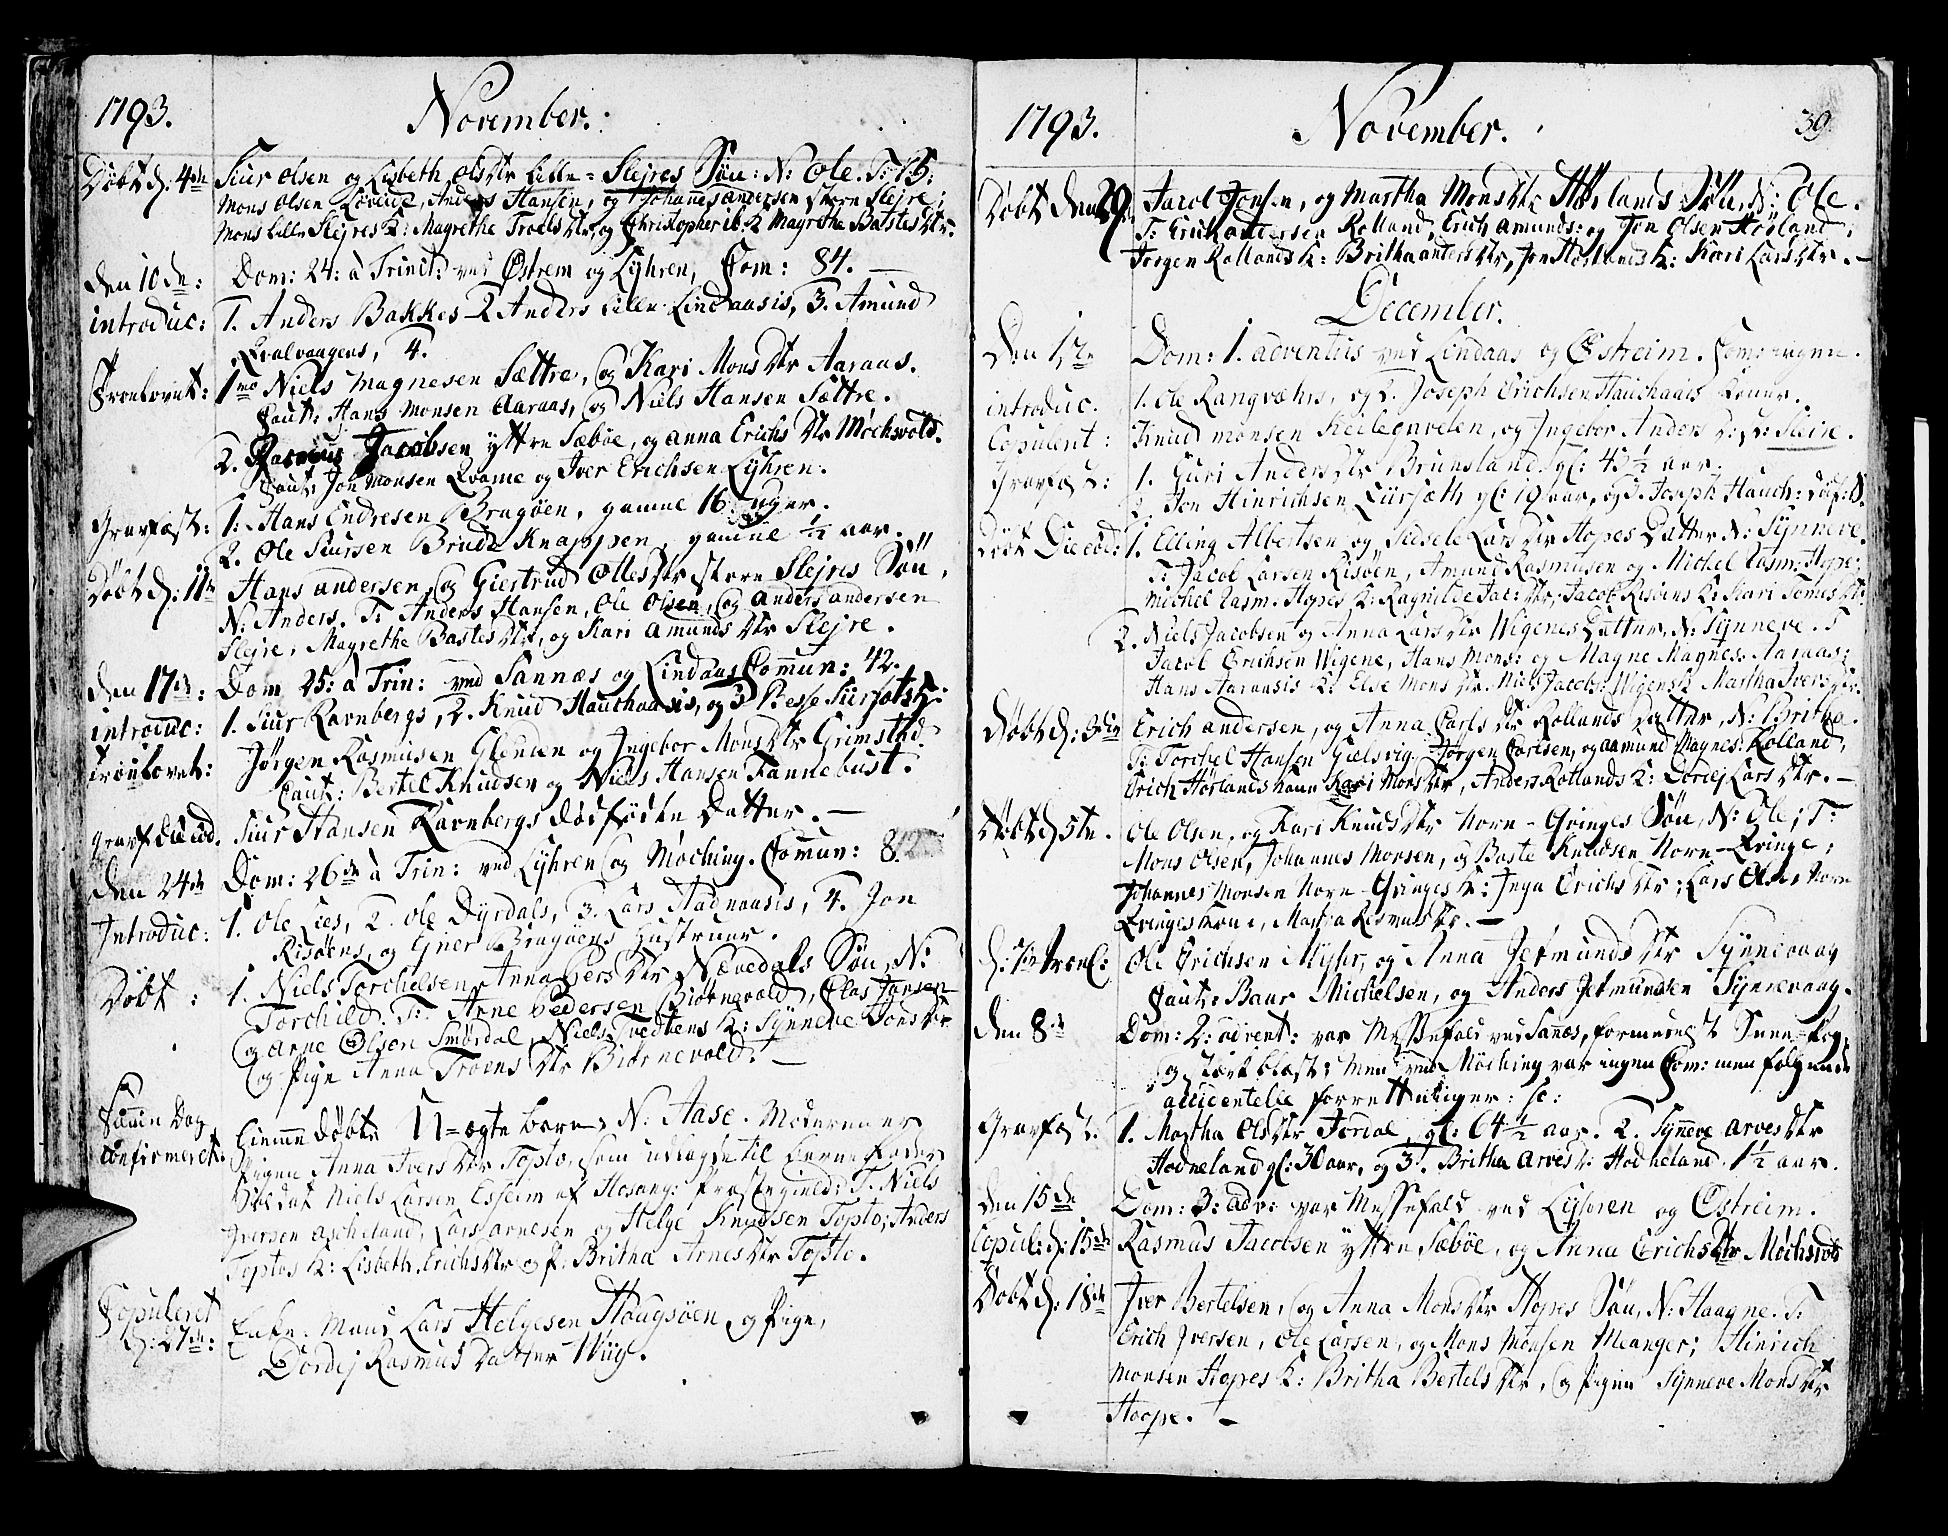 1793. November.
Döbt d: 4de Siur Olsen og Lisbeth Olsdtr Lille-Slejres Søn: N: Ole. T:
Mons Olsen, Anders Hansen, og Johanes andersen store Slejre;
Mons Lille Slejres K: Magrethe Troels dtr, og Christopher K: Magrethe Bastesdtr.
den 10de: Dom: 24: à Trinit: ved Østrem og Lyhren, Com: 84. —
introduc: 1. Anders Bakkes 2 Anders Lille Lindaasis, 3. Amund
Qvalvaagens, 4.
Troelovet: 1mo Niels Magnesen Sættre, og Kari Mons dtr Aaraas.
Caut: Hans Monsen Aaraas, og Niels Hansen Sættre.
2. Rasmus Jacobsen yttre Sæbøe, og Anna Erichs dtr Mochsvold.
Caut: Jon Monsen Qvame og Iver Erichsen Lyhren.
Gravfæst: 1. Hans Endresen Bragøen, gamel 16 uger.
2. Ole Siursen Brude Knappen, gamel ½ aar.
Döbt d: 11te Hans andersen og Giertrud Olles dtr store Slejres Søn,
N: Anders. T: Anders Hansen, Ole Olsen, og Anders andersen
Slejre, Magrethe Bastesdtr, og Kari Amunds dtr Slejre.
den 17de: Dom 25: à Trin: ved Sannæs og Lindaas Comun: 42.
introduc: 1. Siur Ravnbergs, 2. Knud Hauchaasis, og 3
Troelovet: Jørgen Rasmusen Glenden og Ingebor Mons dtr Grimstad.
Caut: Bertel Knudsen og Niels Hansen Fannebust.
Siur Hansen Ravnbergs dødfødte Datter. —
den 24de Dom: 26de à Trin: ved Lyhren og Moching. Comun:
Introduc: 1. Ole Lies, 2. Ole Dyrdals, 3. Lars Hadnaasis, 4. Jon
Risøens, og Giner Bragøens Hustruer.
Döbt: 1. Niels Torchelsen, Anna Pers dtr Nævedals Søn, N:
Torchild. T: Arne Pedersen Biørnevold, Clas Jansen
og Arne Olsen Smørdal, Niels Tvedtens K: Synneve Jonsdtr
og Pige Anna Troens dtr Biørnevold. —
Samme Dag
confirmeret Hiemme døbte U-ægte barn, N: Aase. Moderen er
Pigen Anna Ivers dtr Topto, som udlagde til Barnefader
Soldat Niels Larsen Esseim af Hosang: Præstegield: T: Niels
Iversen ascheland, Lars arnesen og Helge Knudsen Topto; Anders
Toptos K: Lisbeth Erichsdtr og P: Britha Arnes dtr Topto.
Copuleret
d: 27de: Enke-Mand Lars Helgesen Hougsøen og Pige,
Dordej Rasmus Datter Wiig.
1793. November. 39
Döbt den 29 Jacob Jonsen, og Martha Mons dtr Søn, N: Ole.
T: Erich andersen Rolland, Erich Amunds: og Jon Olsen Hørland;
Jørgen Rollands K: Britha anders dtr, Jon Hørlands K: Kari Lars dtr. —
December.
Den 1te Dom: 1. adventus ved Lindaas og Østreim. Com: ingen.
introduc. 1. Ole Rangvæhrs, og 2. Joseph Erichsen Hauchaas Koner.
Copulent: Knud Monsen Keilegavelen, og Ingebor Anders D: St: Sleire.
Gravfæst: 1. Guri Anders dtr Brunsland. gl: 43½ aar.
2. Jon Hinrichsen gl: 10 aar, og 3. Joseph Hauch:
1. Elling Albertsen og Sidsele Lars dtr Hopes Datter N: Synneve.
T: Jacob Larsen Risøen, Amund Rasmusen og Michel Rasm: Hope;
Michel Rasm. Hopes K: Ragnilde Jac: dtr, Jacob Risøens K: Kari
2. Niels Jacobsen og Anna Lars dtr Wigenes Datter, N: Synneve. T
Jacob Erichsen Wigene, Hans Mons: og Magne Magnes: Aaraas;
Hans Aaraasis K: Else Mons dtr, Niels Jacobs: Wigens K: Martha Ivers dtr.
Döbt d: 3die Erich andersen, og Anna Carls dtr Rollands Datter, N: Britha.
T: Torchel Hansen Jørgen Carlsen, og Aamund Magnes: Rolland,
Erich Hørlands kone Kari Mons dtr, Anders Rollands K: Dordej Lars dtr. —
Döbt d 5te. Ole Olsen, og Kari Knuds dtr Norn-Qvinges Søn, N: Ole; T:
Mons Olsen, Johannes Monsen, og Baste Knudsen Norn-Qvinge;
Johannes Monsen Norn-Qvinges K: Inga Erichs dtr; Lars Olsen Norn
Qvinges kone, Martha Rasmusdtr. —
Ole Erichsen Mykr, og Anna Jetmunds dtr Synnevaag
Caut: Baar Michelsen, og Anders Jetmundsen Synnevaag.
den 8de Dom: 2: advent: var Messefald ved Sanæs, formedelst Snee-fog,
og stærk blæst; men ved Moching var ingen Com: men følgende
accidentelle forrettninger: sc:
Gravfæst. 1. Martha Olsdtr Foriæ, gl: 64½ aar. 2. Synneve arves dtr
Hodneland gl: 30 aar, og 3. Britha Arves dr: Hodneland. 1½ aar.
den 15de Dom: 3: adv: var Messefald ved Lyhren og Østreim.
Copul: d: 15de Rasmus Jacobsen yttre Sæbøe, og Anna Erichsdtr Mochsvold
Döbt d: 18de Iver Bertelsen, og Anna Mons dtr Hopes Søn, N: Haagne. T:
Erich Iversen, Ole Larsen, og Mons Monsen Meanger; Hinrich
Monsen Hopes K: Britha Bertels dtr, og Pigen Synneve Mons dtr
Hoope. —